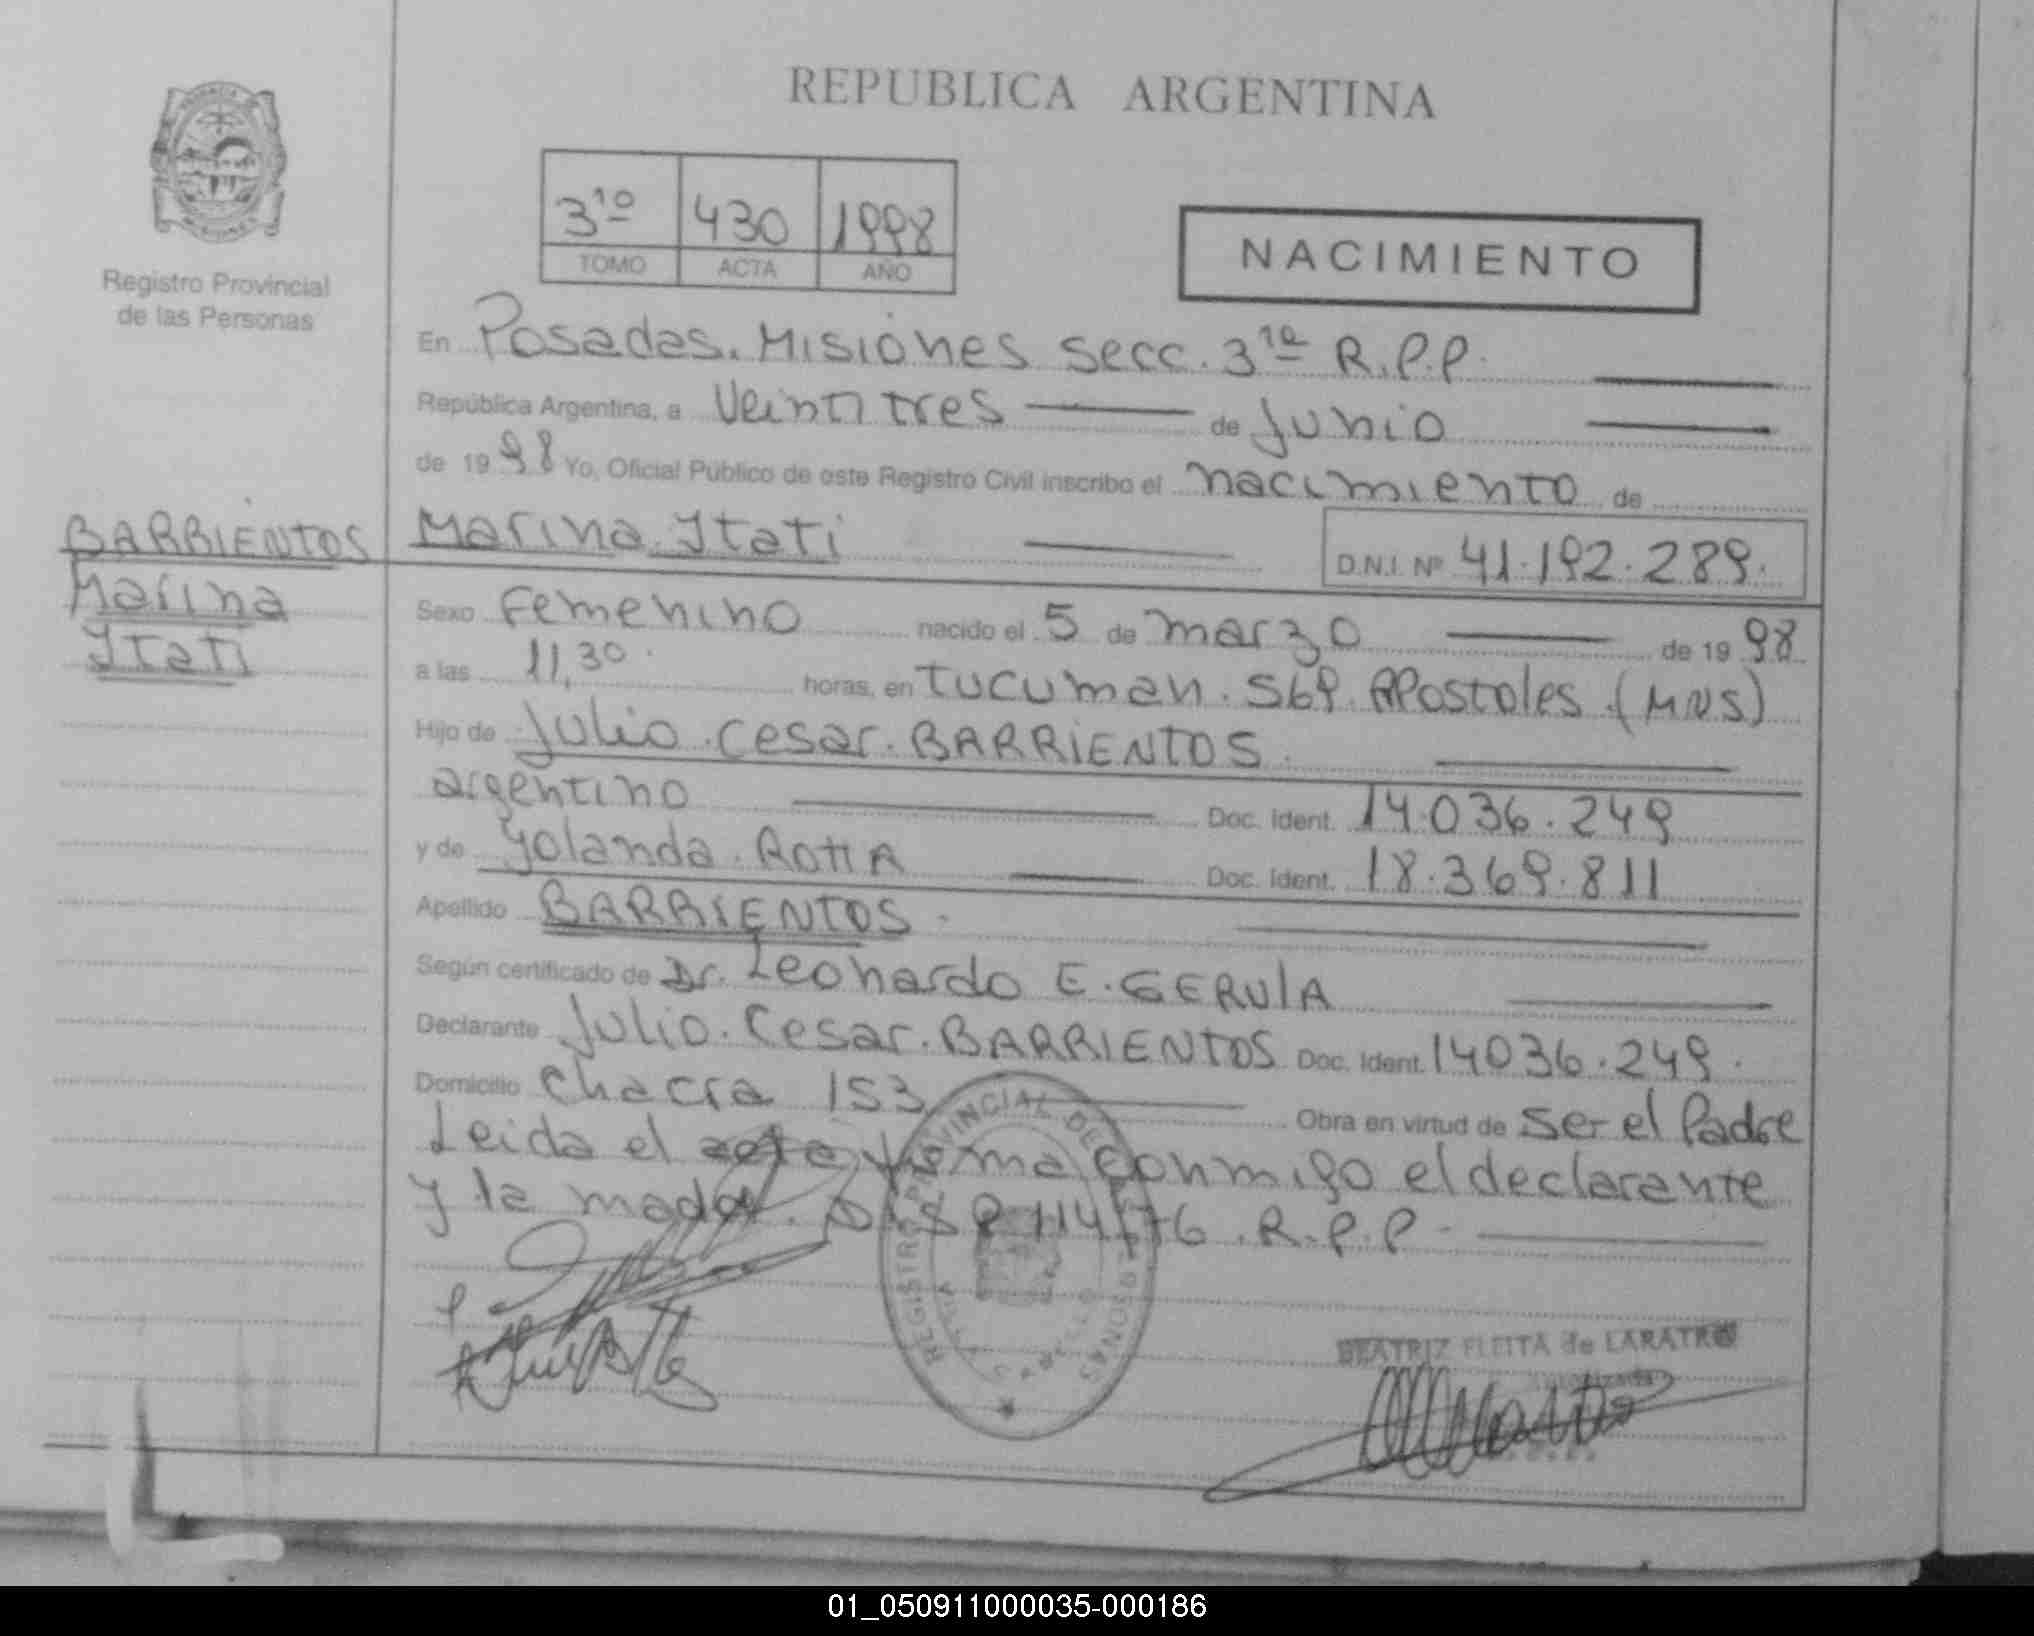 REPUBLICA ARGENTINA
Registro Provincial
de las Personas
31º 430 1998
TOMO ACTA AÑO
NACIMIENTO
En Posadas. Misiones secc. 31ª R.P.P.
República Argentina, a Veintitres de Junio
de 1998 Yo, Oficial Público de este Registro Civil inscribo el nacimiento de
BARRIENTOS
Marina
Itatí
Marina Itati D.N.I. Nº 41.192.289.
Sexo Femenino nacido el 5 de marzo de 1998
a las 11,30. horas, en Tucuman. 569. Apostoles. (MNS)
Hijo de Julio. Cesar. BARRIENTOS.
argentino Doc. Ident. 14.036.249
y de Yolanda. Doc. Ident. 18.369.811
Apellido BARRIENTOS.
Según certificado de Dr. Leonardo E. GERULA
Declarante Julio. Cesar. BARRIENTOS Doc. Ident. 14036.249.
Domicilio Chacra 153 Obra en virtud de ser el Padre
Leida el acta firma conmigo el declarante
y la madre. 114/76. R.P.P.
REGISTRO PROVINCIAL DE LAS PERSONAS
BEATRIZ FLEITA de LARATRO
01_050911000035-000186